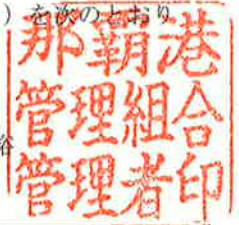 ）を次のとおり
那覇港
管理組合
管理者印